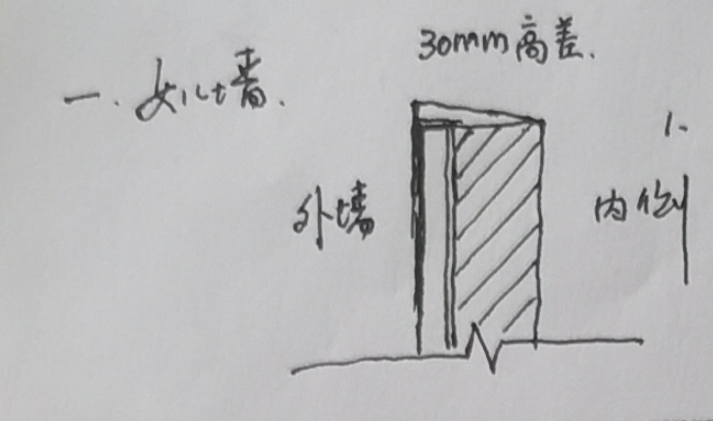 30mm高差.
一.女儿墙.
1.
外墙
内侧